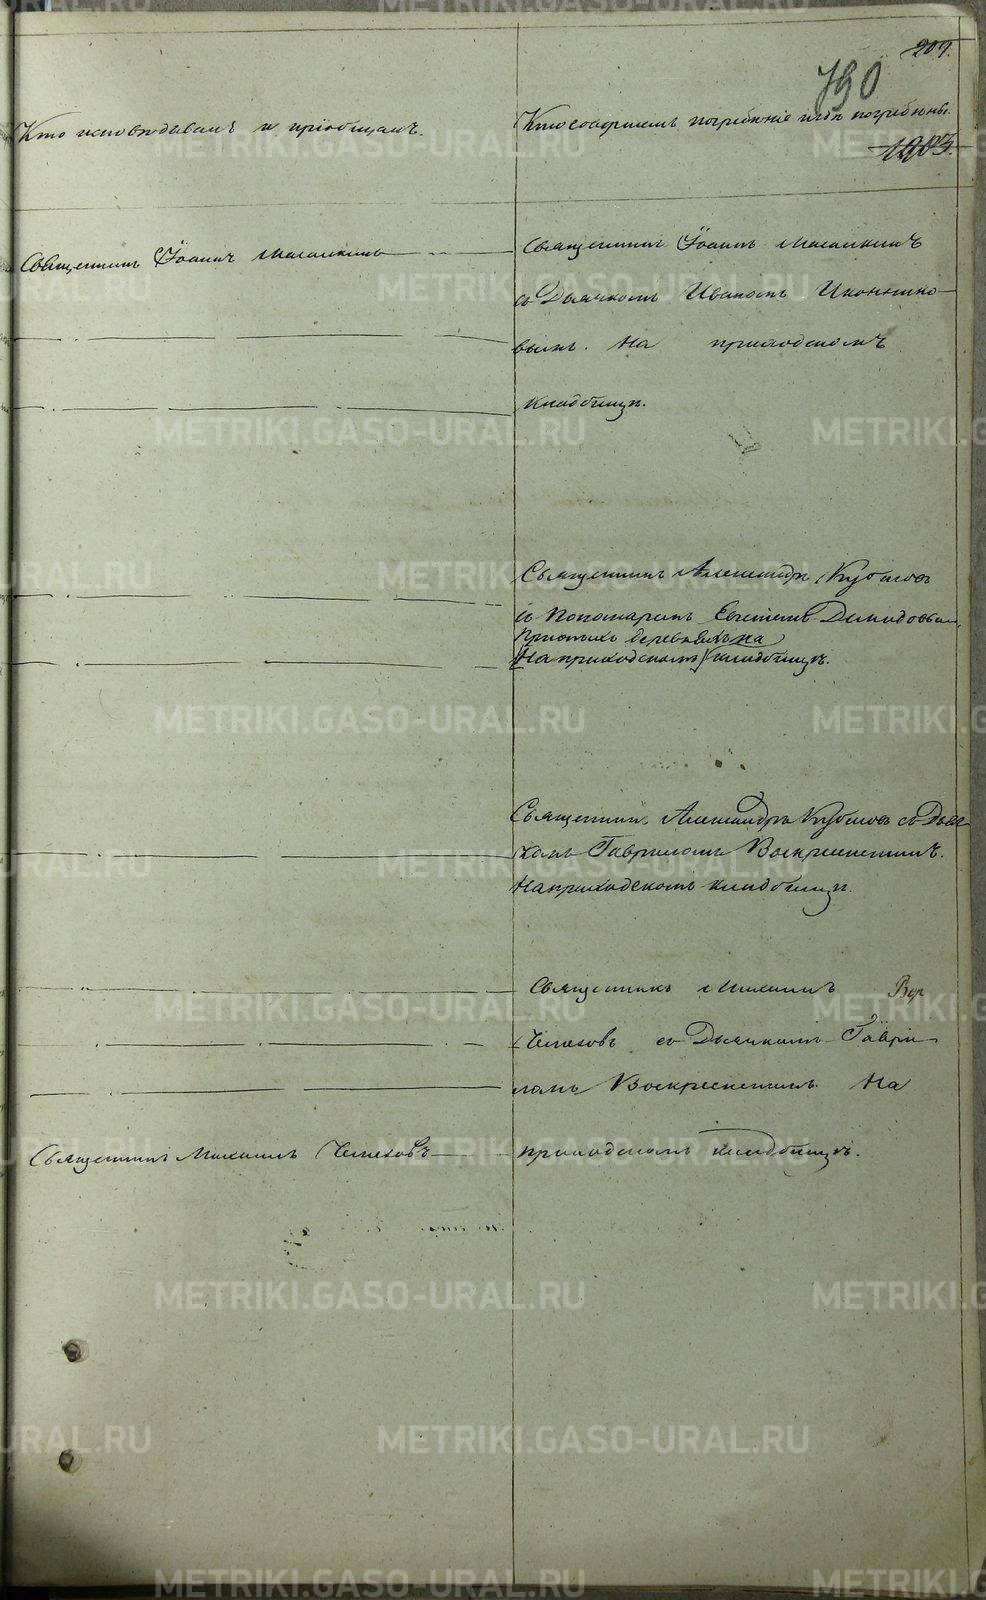 207.
790
Кто исповѣдывалъ и пріобщалъ.
Кто совершалъ погребеніе и гдѣ погребены.
1903.
Священникъ Іоаннъ
Священникъ Іоаннъ
съ Дьячкомъ Иваномъ Иконнико-
вымъ. На приходскомъ
кладбищѣ.
Священникъ Александръ
и Пономаремъ Демидовым.
На приходскомъ кладбищѣ.
Священникъ Александръ съ Дьяч-
комъ Гавриломъ Воскресенскимъ.
На приходскомъ кладбищѣ.
Священникъ Михаилъ
Чемезовъ со Дьячкомъ Гаври-
ломъ Воскресенскимъ. На
Священникъ Михаилъ Чемезовъ
приходскомъ кладбищѣ.
METRIKI.GASO-URAL.RU